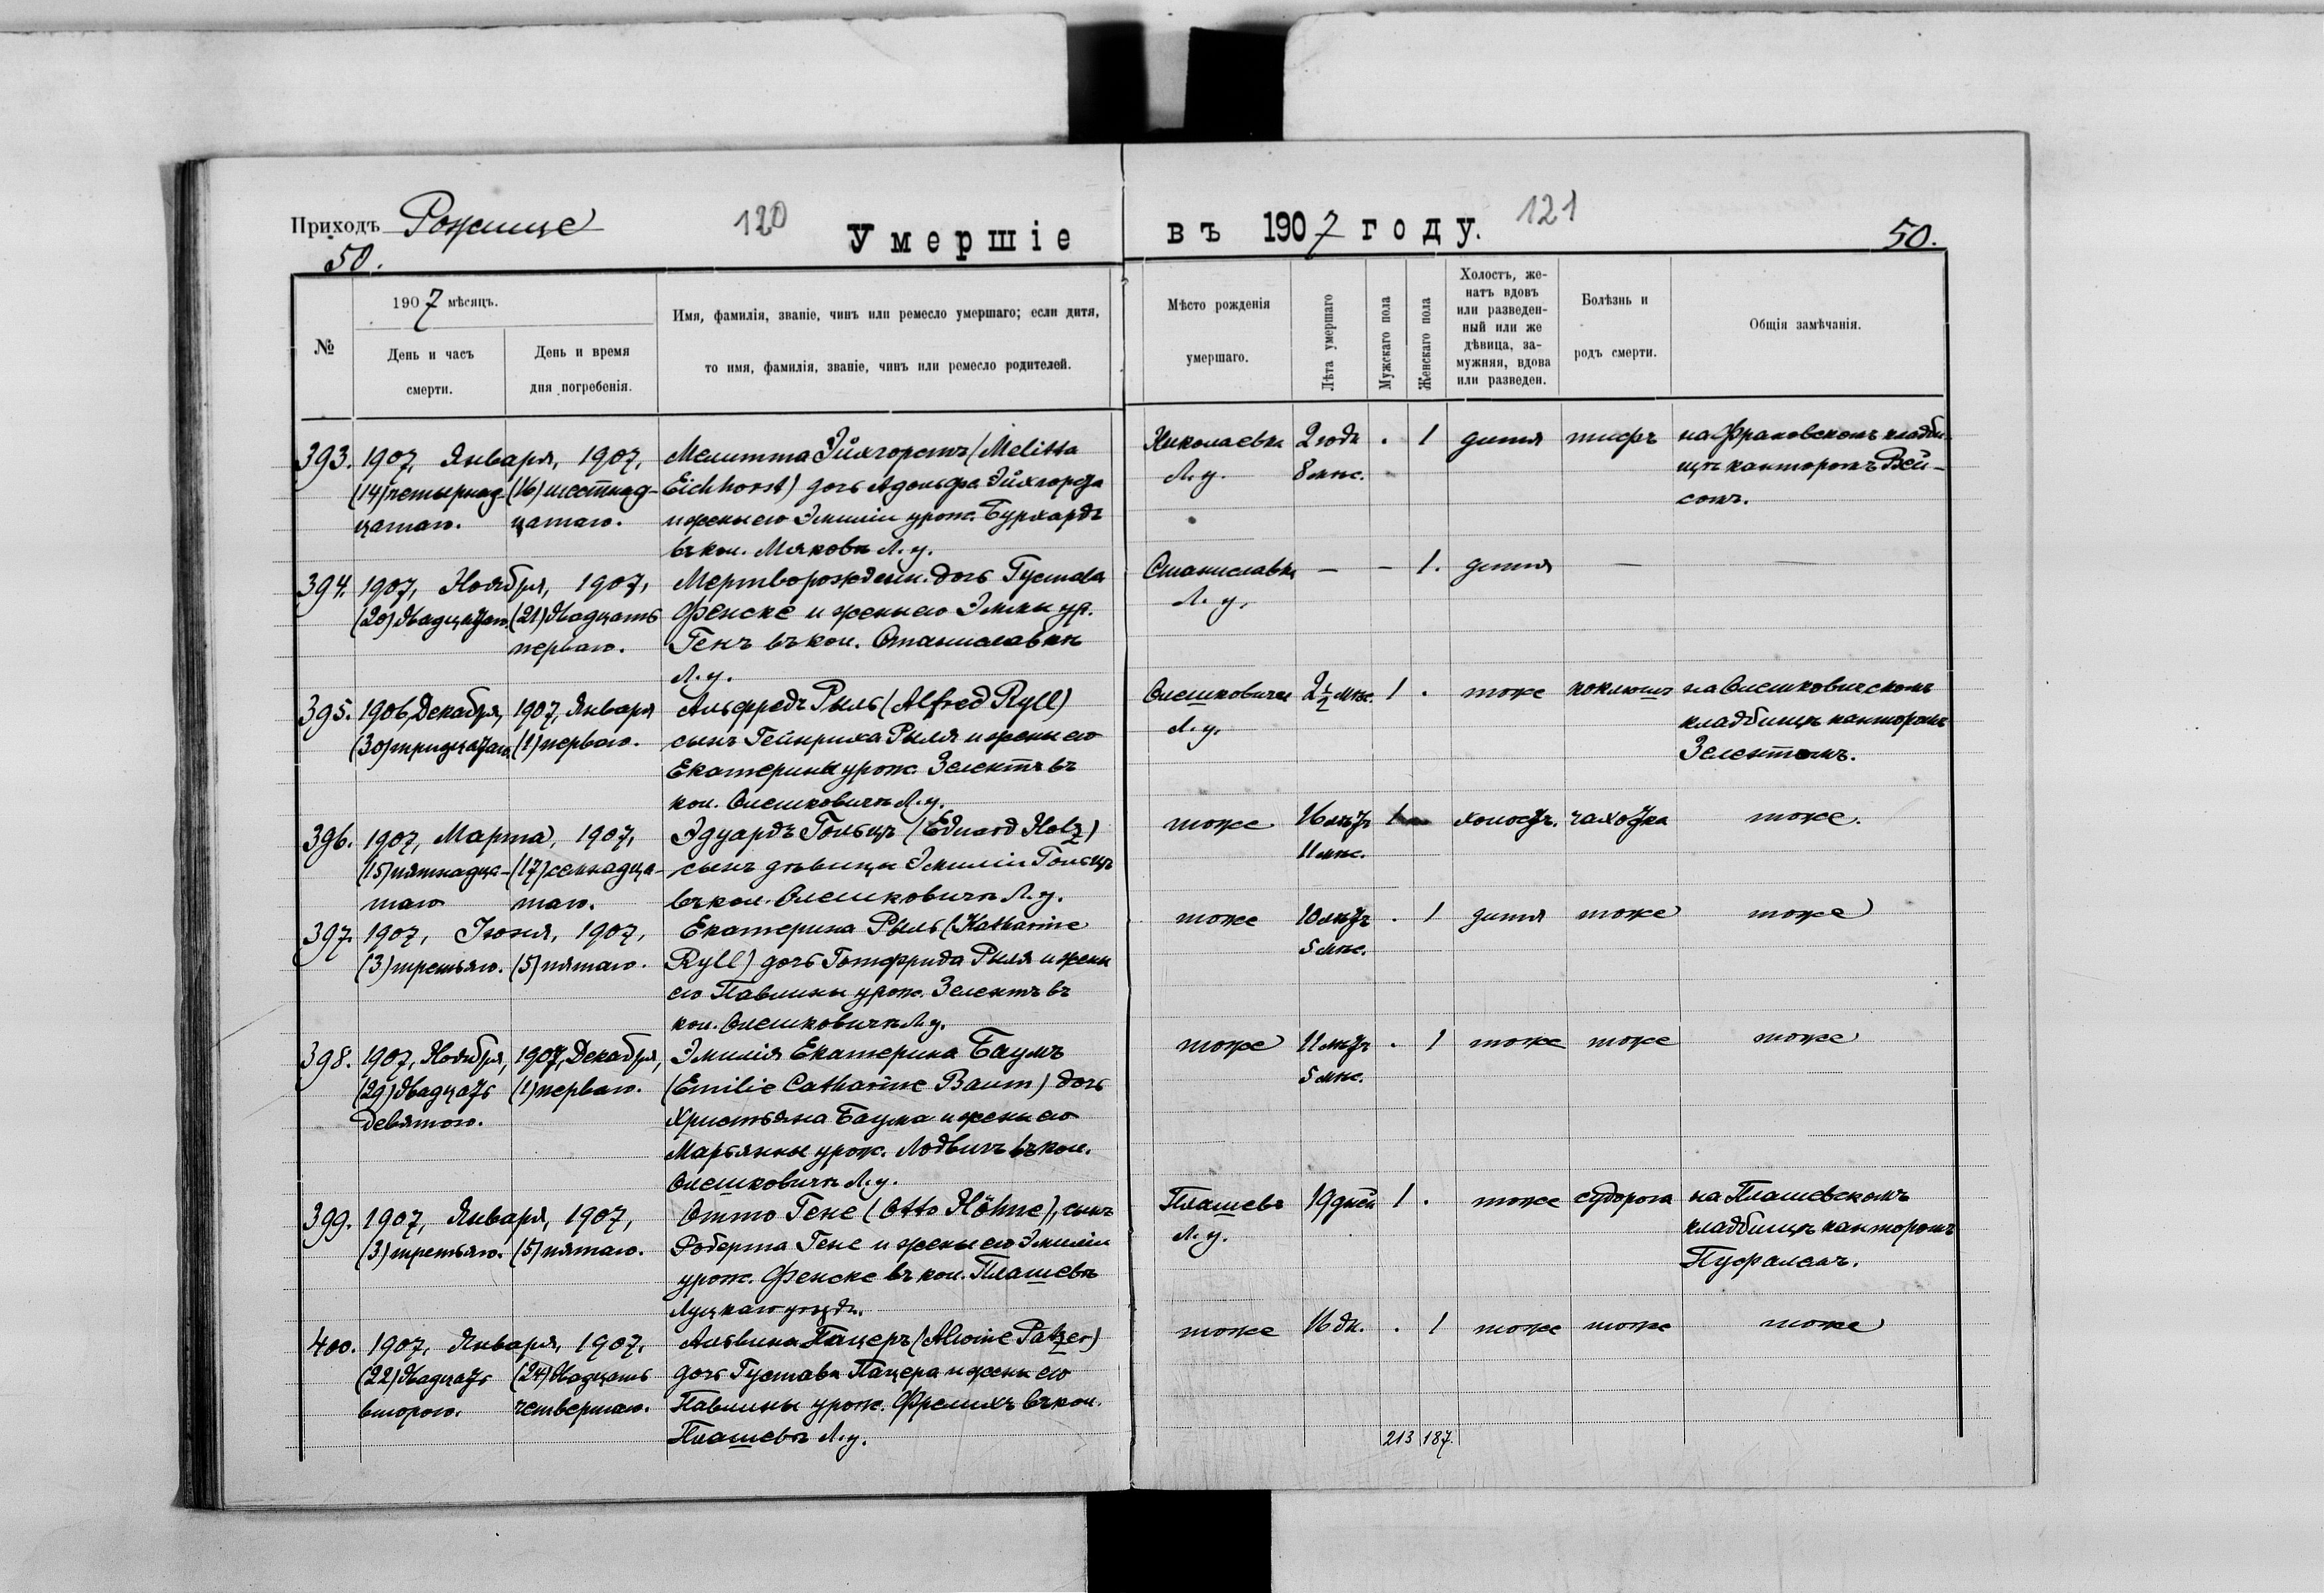 Приходъ Рожище 120 Умершіе
50.
въ 1907 году. 121 50.
№
1907 мѣсяцъ.
День и часъ смерти.
День и время дня погребенія.
Имя, фамилія, званіе, чинъ или ремесло умершаго; если дитя,
то имя, фамилія, званіе, чинъ или ремесло родителей.
Мѣсто рожденія умершаго.
Лѣта умершаго
Мужскаго пола
Женскаго пола
Холостъ, же-
натъ вдовъ
или разведен-
ный или же
дѣвица, за-
мужняя, вдова
или разведен.
Болѣзнь и
родъ смерти.
Общія замѣчанія.
393. 1907, Января, 1907, Мелитта Эйхгорстъ (Melitta
(14) четырнад- (16) шестнад- Eichhorst) дочь Адольфа Эйхгорста
цатаго. цатаго. и жены его Эмиліи урож. Бурхардъ
въ кол. Л. у.
Николаевка 2 года . 1 дитя тифъ на кладби-
Л. у. 8 мѣс. щѣ канторомъ Вей-
сомъ.
394. 1907, Ноября, 1907, Мертворожденн. дочь Густава
(20) двадцатаго (21) двадцать Фенске и жены его Эммы ур.
перваго. Генъ въ кол. Станиславкѣ
Л. у.
Станиславка — — 1. дитя — —
Л. у.
395. 1906, Декабря, 1907, Января Альфредъ Рыль (Alfred Ryll)
(30) тридцатаго (1) перваго. сынъ Гейнриха Рыля и жены его
Екатерины урож. Зелентъ въ
кол. Олешковичѣ Л. у.
Олешковичи 2½ мѣс. 1 . тоже коклюшъ на Олешковичскомъ
Л. у. кладбищѣ канторомъ
Зелентомъ.
396. 1907, Марта, 1907, Эдуардъ Гольцъ (Eduard Holz)
(15) пятнадца- (17) семнадца- сынъ дѣвицы Эмиліи Гольцъ
таго таго. въ кол. Олешковичѣ Л. у.
тоже 16 лѣтъ 1 холостъ. чахотка тоже.
11 мѣс.
397. 1907, Іюня, 1907, Екатерина Рыль (Katharine
(3) третьяго. (5) пятаго. Ryll) дочь Готфрида Рыля и жены
его Павлины урож. Зелентъ въ
кол. Олешковичѣ Л. у.
тоже 10 лѣтъ . 1 дитя тоже тоже
5 мѣс.
398. 1907, Ноября, 1907, Декабря, Эмилія Екатерина Баумъ
(29) двадцать (1) перваго. (Emilie Catharine Baum) дочь
девятого. Христьяна Баума и жены его
Марьянны урож. Лодвигъ въ кол.
Олешковичѣ Л. у.
тоже 11 лѣтъ . 1 тоже тоже тоже
5 мѣс.
399. 1907, Января, 1907, Отто Гене (Otto Höhne), сынъ
(3) третьяго. (5) пятаго. Роберта Гене и жены его Эмиліи
урож. Фенске въ кол. Пляшевѣ
Луцкаго уѣзда.
Пляшевъ 19 дней 1 . тоже судорога на Пляшевскомъ
Л. у. кладбищѣ канторомъ
Пуфалемъ.
400. 1907, Января, 1907, Альвина Пацеръ (Alwine Patzer)
(22) двадцать (24) двадцать дочь Густава Пацера и жены его
второго. четвертаго. Павлины урож. Фрелихъ въ кол.
Пляшевъ Л. у.
тоже 16 дн. . 1 тоже тоже тоже
213 187.